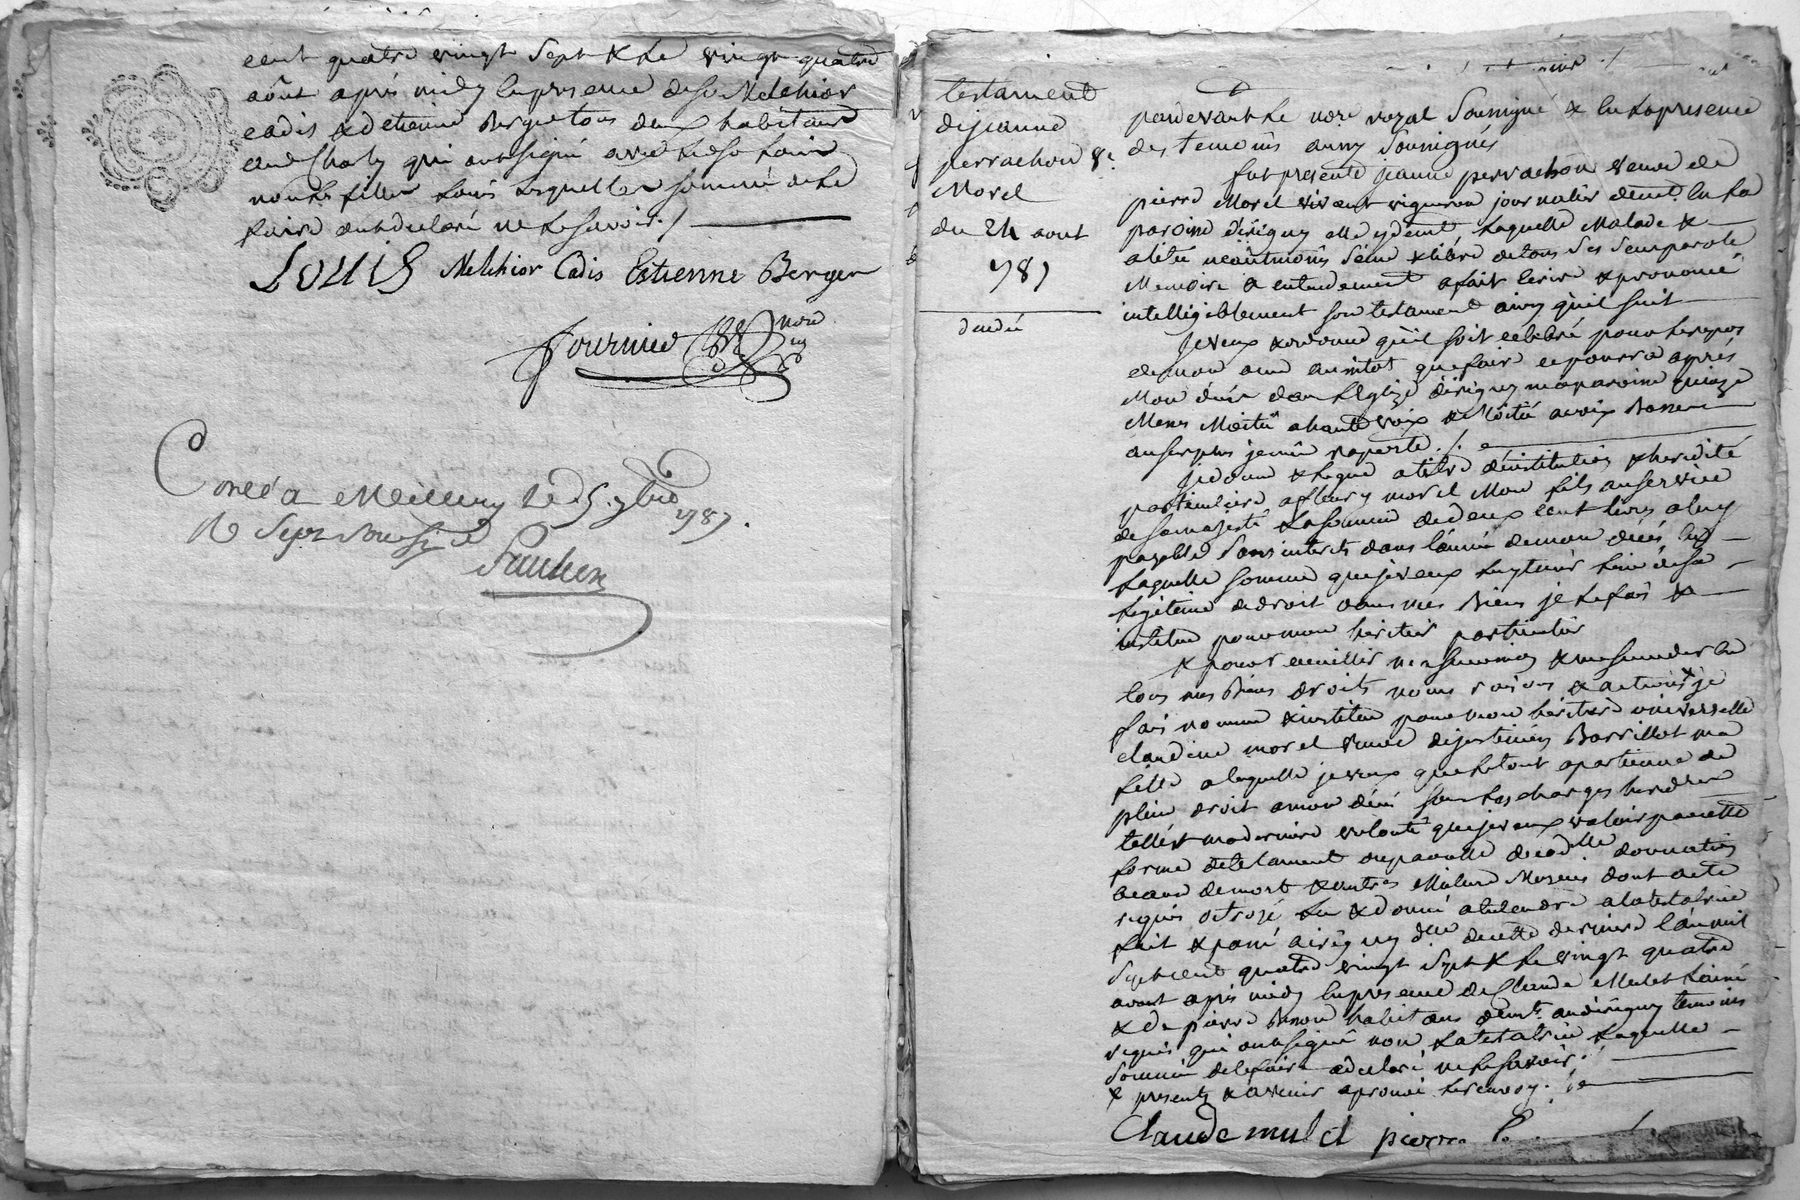 cent quatre vingt sept & le vingt quatre
aôut après midy en presence de sr Melchior
cadis & d'etienne Berger tous deux habitans
au d. Charly qui ont signé avec led. sr Louis
non les filles Louis lesquelles sommé de le
faire ont declaré ne le savoir ./.
Louis Melchior Cadis Estienne Berger
fournier nore
Conlé a Millery le 5. 7bre 1787.
R sept sous six d
testament
de jeanne
perrachon ve
Morel
du 24 aout
1787
pardevant le nore royal soussigné & en la presence
des temoins aussy soussignés
fut presente jeanne perrachon veuve de
pierre Morel vivant vigneron journalier demt. en la
paroisse d'irigny elle y demt. laquelle Malade &
alitée néantmoins saine & libre de tous ses sens parole
Memoire & entendement a fait ecrire & prononcé
intelligiblement son testament ainsy qu'il suit
je veux & ordonne qu'il soit célébré pour le repos
de mon ame aussitot que faire ce pourra après
Mon décès dans l'Eglize d'irigny ma paroisse quinze
Messes Moitié a haute voix & Moitié a voix Basse
au surplus je m'en raporte ./.
je donne & legue a titre d'institution & heredité
particuliere a fleury morel Mon fils au service
de sa majesté la somme de deux cent livres a luy
payable sans interets dans l'année de mon décés
laquelle somme que je veux luy tenir lieu de sa
legitime de droit dans mes Biens je le fais &
institue pour mon héritier particulier
& pour receuillir ma succession & me succeder en
tous mes Biens droits noms raisons & actions je
fais nomme & institue pour mon héritiere universelle
claudine morel veuve de justinien Barrillot ma
fille a laquelle je veux que le tout apartienne de
plein droit a mon décé sous les charges
telle est ma derniere volonté que je veux valoir par cette
forme de testament ou par celle de codille donnation
a cause de mort & autres Milieure Moyens dont acte
requis octroyé lu & donné a entendre a la testatrice
fait & passé a irigny delle de cette derniere l'an mil
sept cent quatre vingt sept & le vingt quatre
aout après midy en presence de Claude Mulet
& de pierre habitans demt. aud. irigny temoins
requis qui ont signé non la testatrice laquelle
sommée de le faire a declaré ne le savoir ./.
& presents & avenir aprouvé le renvoy ./.
Claude mulet pierre